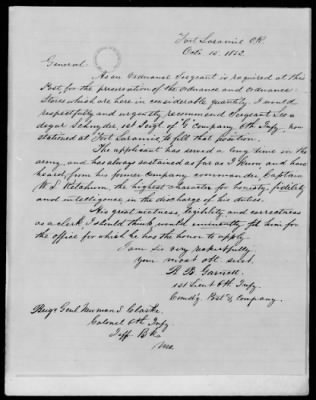 Fort Laramie O.R.
Octo. 12. 1852.
General:
As an Ordnance Sergeant is required at this
Post, for the preservation of the Ordnance and Ordnance
Stores which are here in considerable quantity, I would
respectfully and urgently recommend Sergeant Leo
degar Schnyder, 1st Sergt. of "G" Company 6th Infy. now
stationed at Fort Laramie to fill that position.
The applicant has served a long time in the
army, and has always sustained as far as I know and have
heard, from his former company commander, Captain
W. S. Ketchum, the highest character for honesty, fidelity
and intelligence, in the discharge of his duties.
His great neatness, legibility and correctness
as a clerk, I should think would eminently fit him for
the office for which he has the honor to apply.
I am Sir very respectfully
your most obt. servt.
R. B. Garnett
1st Lieut 6th Infy.
Comdg. Post & Company.
Brig. Genl Newman S. Clarke
Colonel 6th Infy.
Jeff. Bks
Mo.